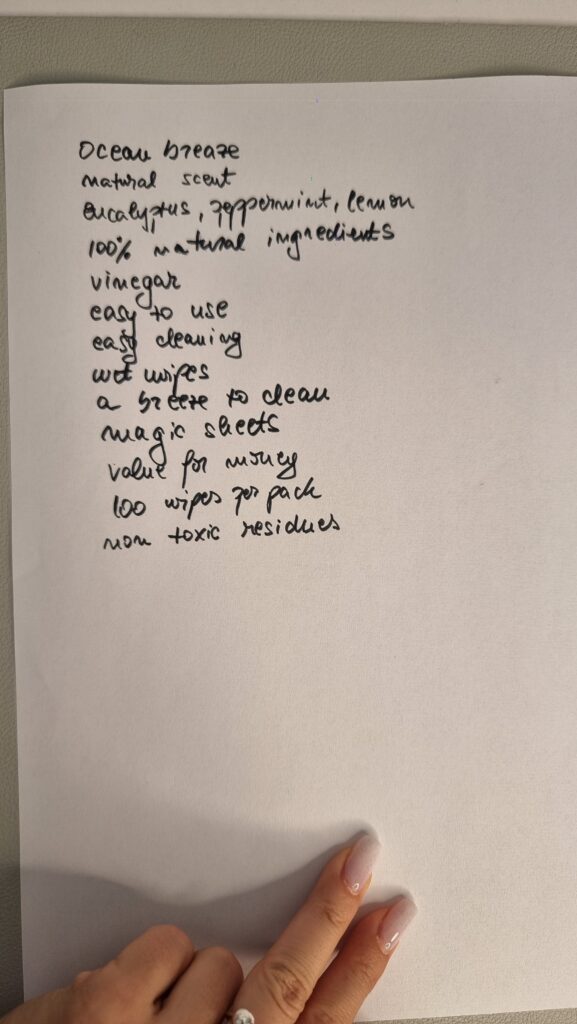 Ocean breaze
natural scent
eucalyptus, peppermint, lemon
100% natural ingredients
vinegar
easy to use
easy cleaning
wet wipes
a breeze to clean
magic sheets
value for money
100 wipes per pack
non toxic residues